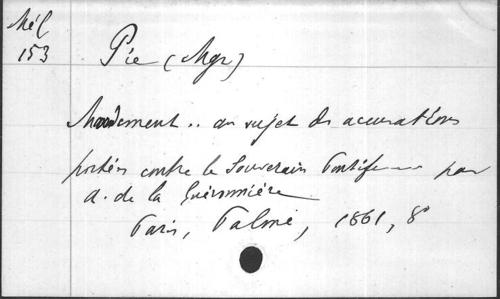 Mél
153
Pie (Mgr)
Mandement .. au sujet des accusations
portées contre le Souverain Pontife par
A. de la Guéronnière
Paris, Palmé, 1861, 8°